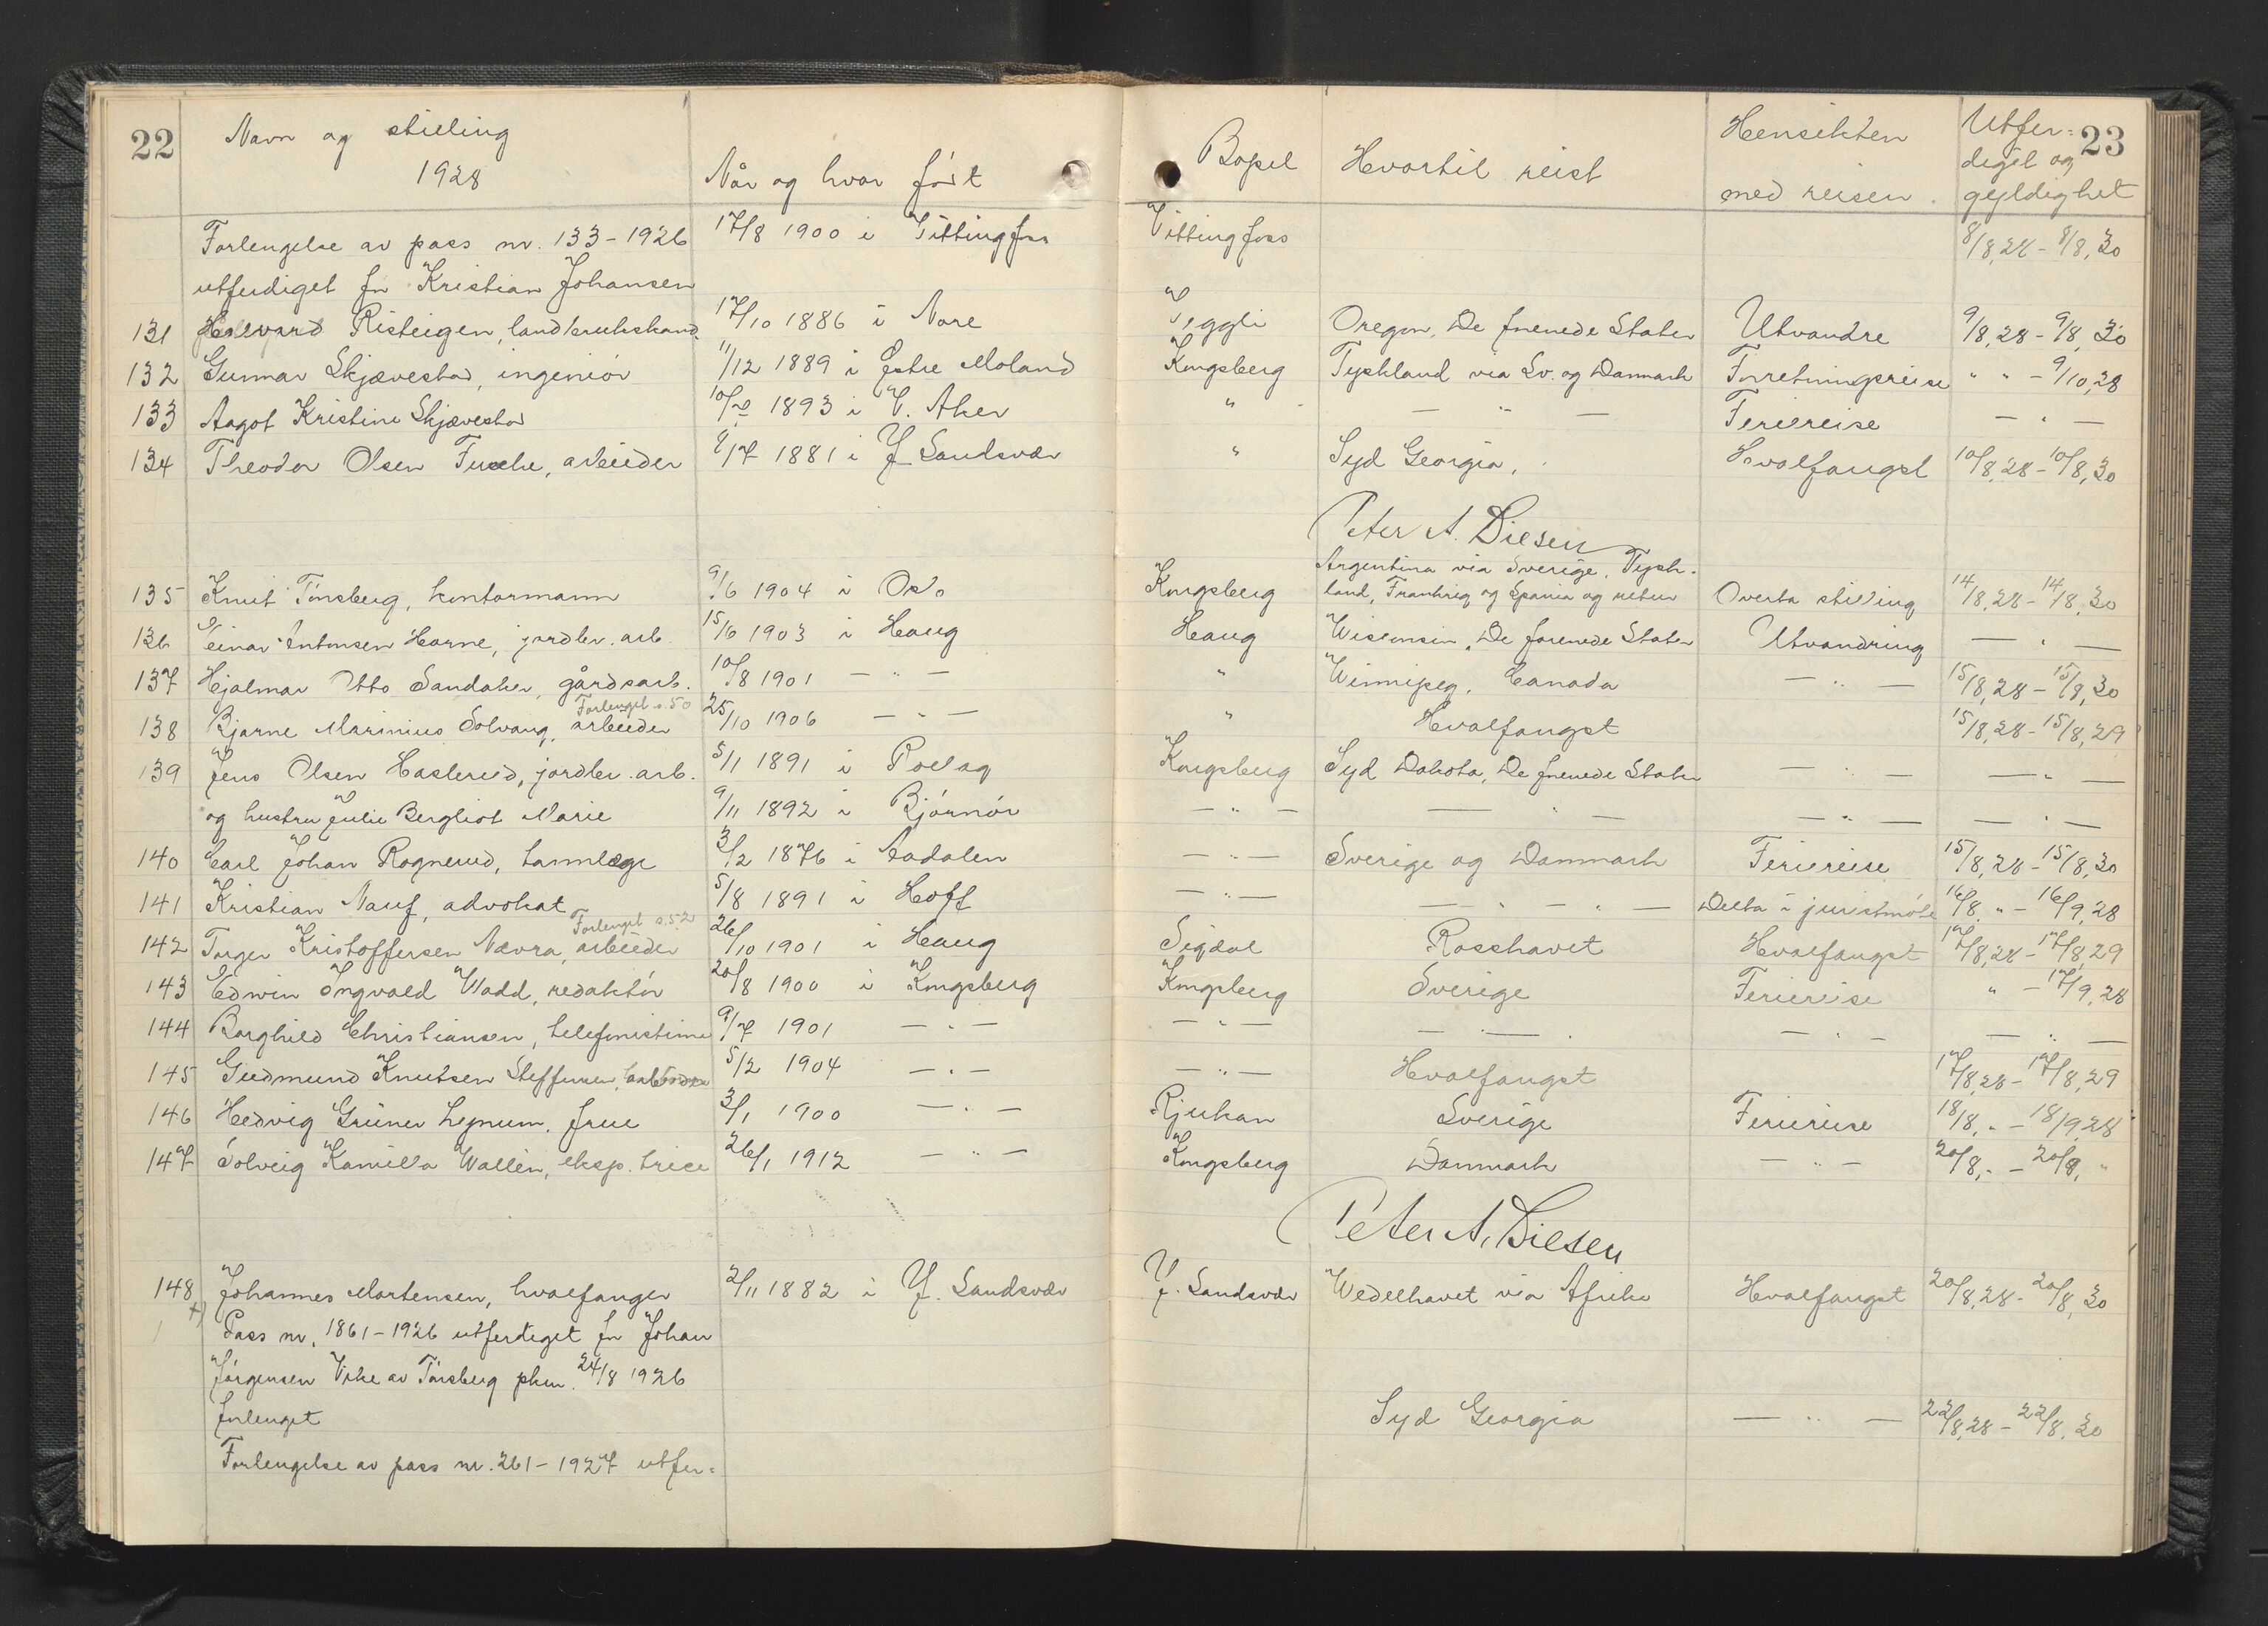 22 Navn og stilling 1928 Når og hvor født Bopel Hvortil reist Hensikten med reisen. Utfer= diget og gyldighet 23
Forlengelse av pass nr. 133-1926 17/8 1900 i Vittingfoss Vittingfoss 8/8,28 - 8/8,30
utferdiget for Kristian Johansen
131 Halvard Risteigen, landbrukskand. 17/10 1886 i Nore Veggli Oregon, De forenede Stater Utvandre 9/8,28 - 9/8,30
132 Gunnar Skjævestad, ingeniør 11/12 1889 i Østre Moland Kongsberg Tyskland via Sv. og Danmark Forretningsreise " " - 9/10,28
133 Aagot Kristine Skjævestad 1893 i V. Aker " — " — Feriereise — " —
134 Theodor Olsen arbeider 1881 i Y. Sandsvær " Syd Georgia. Hvalfangst 10/8,28 - 10/8,30
Peter A. Diesen
135 Knut Tønsberg, kontormann 9/6 1904 i Oslo Kongsberg Argentina via Sverige, Tysk- land, Frankrig og Spania og retur Overta stilling 14/8,28 - 14/8,30
136 Einar Antonsen Horne, jordbr. arb. 15/6 1903 i Haug Haug Wisconsin, De forenede Stater Utvandring — " —
137 Hjalmar Otto Sandaker, gårdsarb. 10/8 1901 — " — " Winnipeg, Canada — " — 15/8,28 - 15/8,30
Forlenget s. 50
138 Bjarne Marinius Solvang, arbeider 25/10 1906 — " — " Hvalfangst 15/8,28 - 15/8,29
139 Jens Olsen Haslerud, jordbr. arb. 5/1 1891 i Rollag Kongsberg Syd Dakota, De forenede Stater — " — — " —
og hustru Julie Bergliot Marie 9/11 1892 i Bjørnør — " — — " — — " — — " —
140 Carl Johan Rognerud, tannlæge 3/2 1876 i Aadalen — " — Sverige og Danmark Feriereise 15/8,28 - 15/8,30
141 Kristian Nauf, advokat 5/8 1891 i Hoff — " — — " — " — Delta i juristmøte 16/8 " - 16/9,28
Forlenget s. 52
142 Torger Kristoffersen Nævra, arbeider 26/10 1901 i Haug Sigdal Rosshavet Hvalfangst 17/8,28 - 17/8,29
143 Edwin Ingvald Wadd, redaktør 20/8 1900 i Kongsberg Kongsberg Sverige Feriereise " - 17/9,28
144 Borghild Christiansen, telefonistinne 9/7 1901 — " — — " — — " — — " — — " —
145 Gudmund Knutsen Steffensen, 5/12 1904 — " — — " — Hvalfangst 17/8,28 - 17/8,29
146 Hedvig Grüner Lepnum, frue 3/1 1900 — " — Rjukan Sverige Feriereise 18/8, " - 18/9,28
147 Solveig Kamilla Wallén, eksp. trice 26/1 1912 — " — Kongsberg Danmark — " — 20/8, " - 20/9, "
Peter A. Diesen
148 Johannes Mortensen, hvalfanger 2/11 1882 i Y. Sandsvær Y. Sandsvær Wedelhavet via Afrika Hvalfangst 20/8,28 - 20/8,30
+) Pass nr. 1861-1926 utferdiget for Johan
Jørgensen Vike av Tønsberg pkm. 24/8 1926
forlenget Syd Georgia — " — 22/8,28 - 22/8,30
Forlengelse av pass nr. 261-1927 utfer=